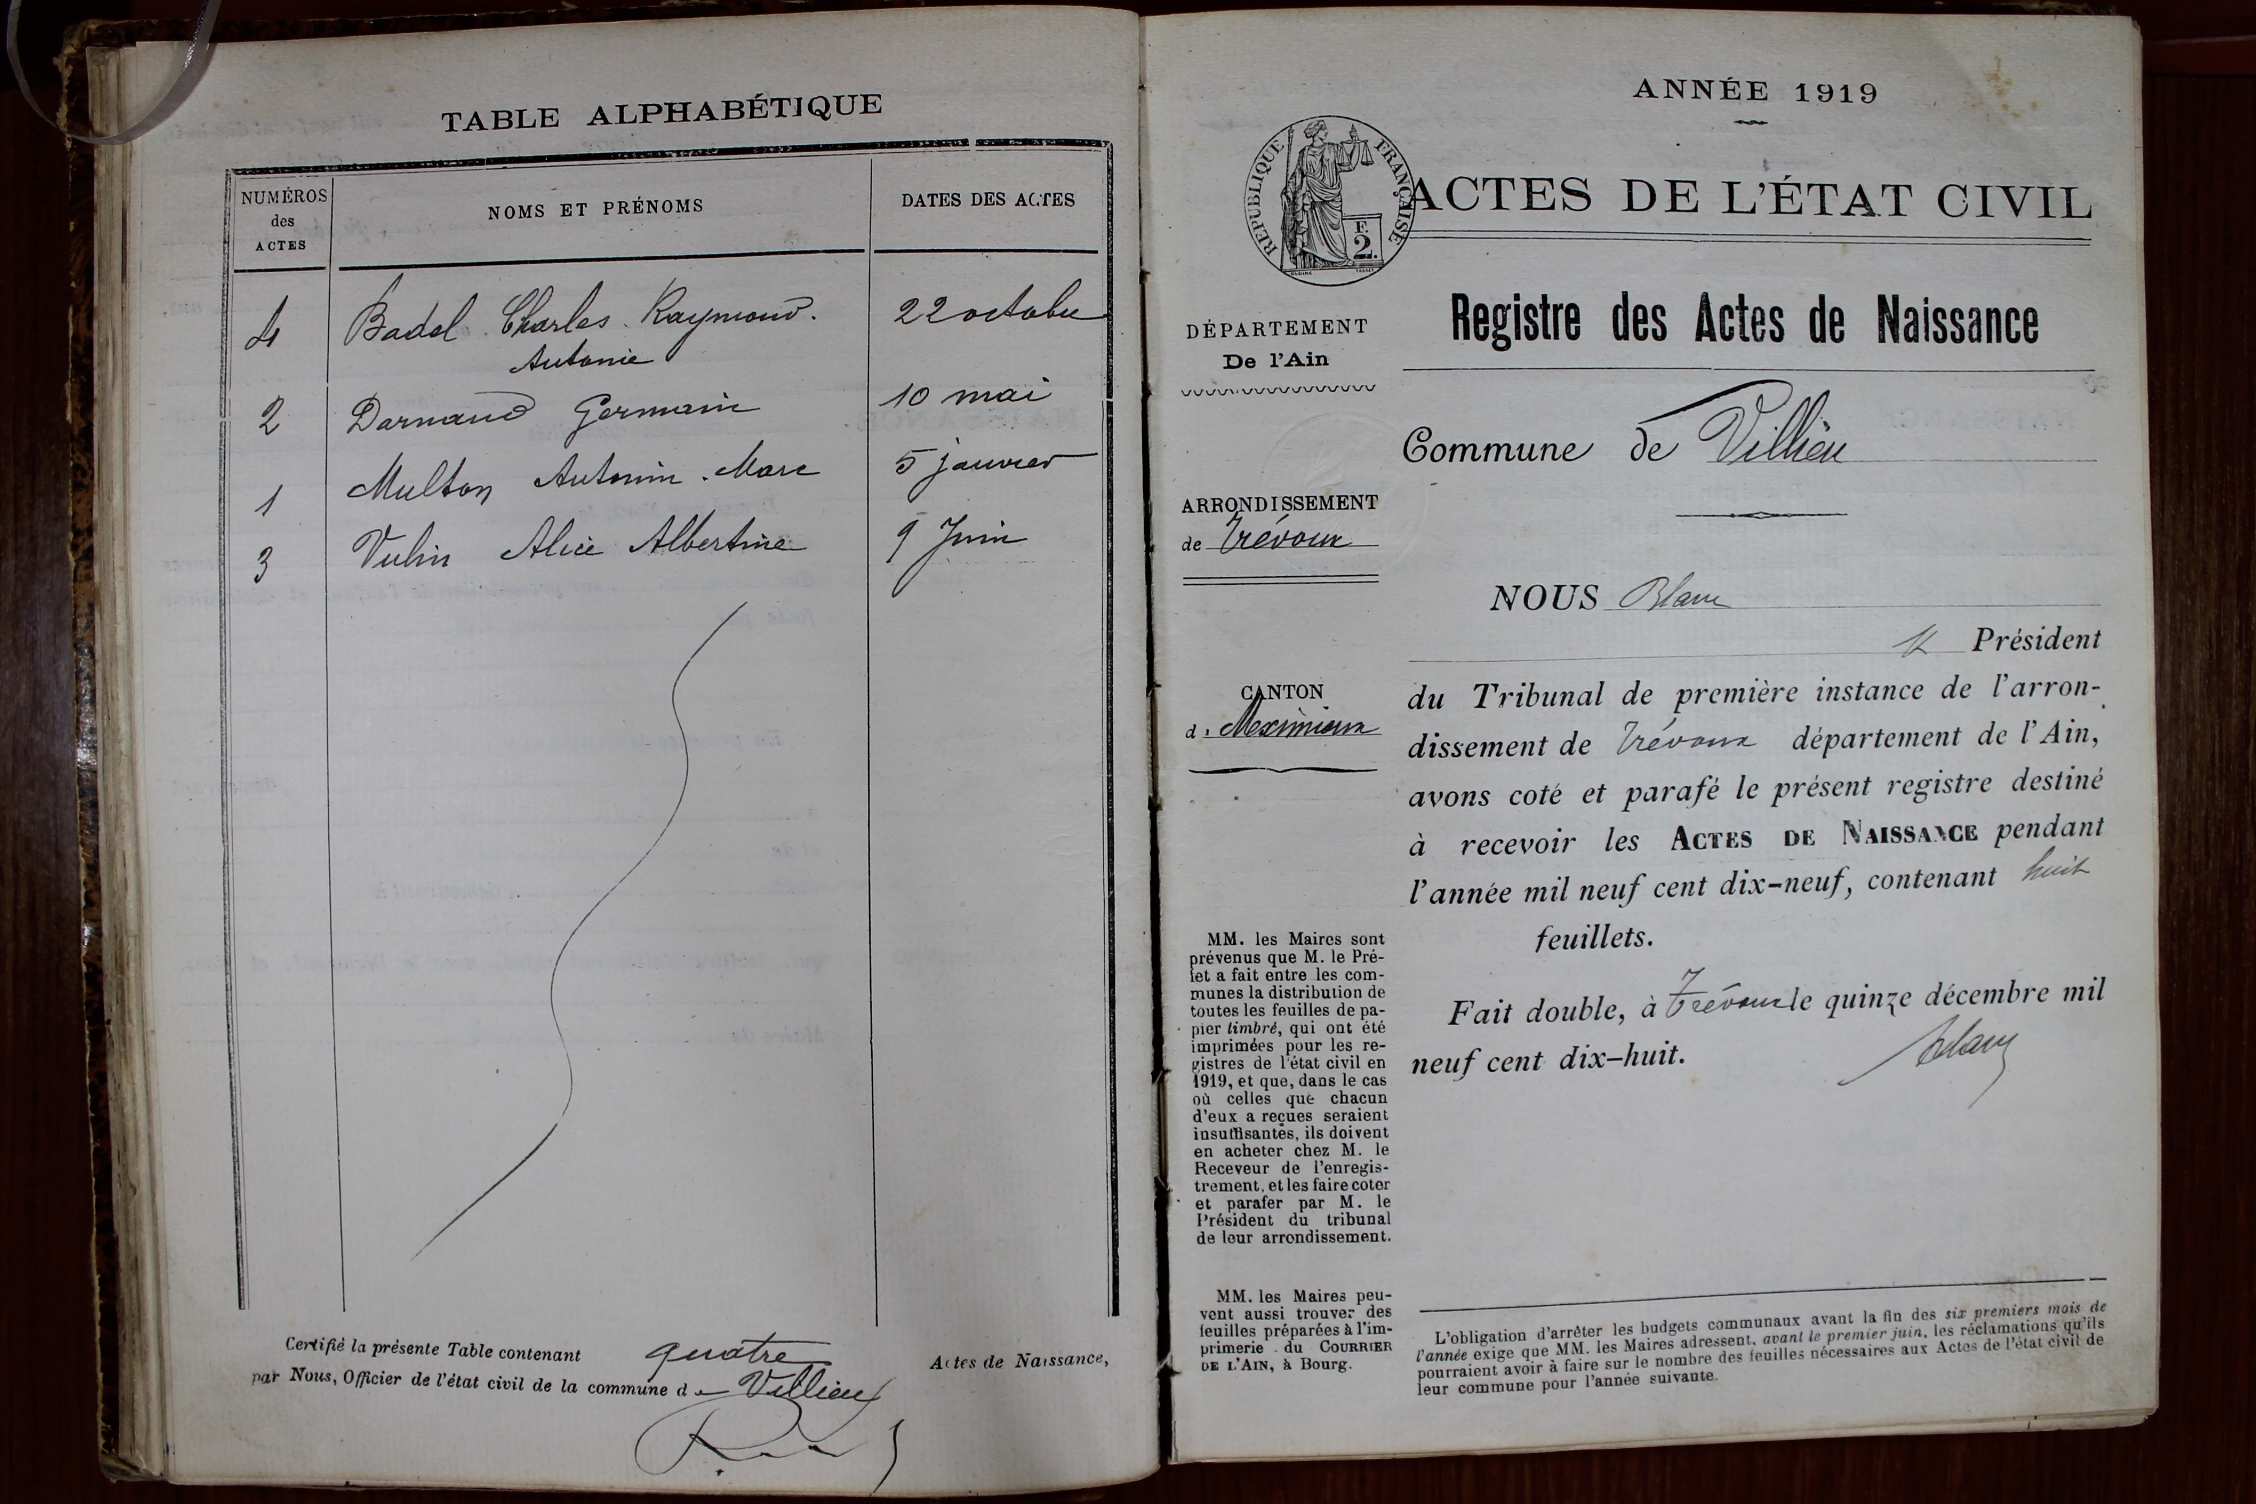 TABLE ALPHABÉTIQUE
NUMÉROS des ACTES
NOMS ET PRÉNOMS
DATES DES ACTES
4 Badel Charles Raymond. 22 octobre
Antonie
2 Darnand Germain 10 mai
1 Multon Antonin Marc 5 janvier
3 Vulin Alice Albertine 9 Juin
Certifié la présente Table contenant quatre Actes de Naissance,
par Nous, Officier de l'état civil de la commune de Villieu
ANNÉE 1919
RÉPUBLIQUE FRANÇAISE
F. 2.
ACTES DE L'ÉTAT CIVIL
DÉPARTEMENT
De l'Ain
ARRONDISSEMENT
de Trévoux
CANTON
d. Meximieux
MM. les Maires sont
prévenus que M. le Pré-
fet a fait entre les com-
munes la distribution de
toutes les feuilles de pa-
pier timbré, qui ont été
imprimées pour les re-
gistres de l'état civil en
1919, et que, dans le cas
où celles que chacun
d'eux a reçues seraient
insuffisantes, ils doivent
en acheter chez M. le
Receveur de l'enregis-
trement, et les faire coter
et parafer par M. le
Président du tribunal
de leur arrondissement.
MM. les Maires peu-
vent aussi trouver des
feuilles préparées à l'im-
primerie du COURRIER
DE L'AIN, à Bourg.
Registre des Actes de Naissance
Commune de Villieu
NOUS Blanc
Président
du Tribunal de première instance de l'arron-
dissement de Trévoux département de l'Ain,
avons coté et parafé le présent registre destiné
à recevoir les ACTES DE NAISSANCE pendant
l'année mil neuf cent dix-neuf, contenant huit
feuillets.
Fait double, à Trévoux le quinze décembre mil
neuf cent dix-huit.
Blanc
L'obligation d'arrêter les budgets communaux avant la fin des six premiers mois de
l'année exige que MM. les Maires adressent, avant le premier juin, les réclamations qu'ils
pourraient avoir à faire sur le nombre des feuilles nécessaires aux Actes de l'état civil de
leur commune pour l'année suivante.